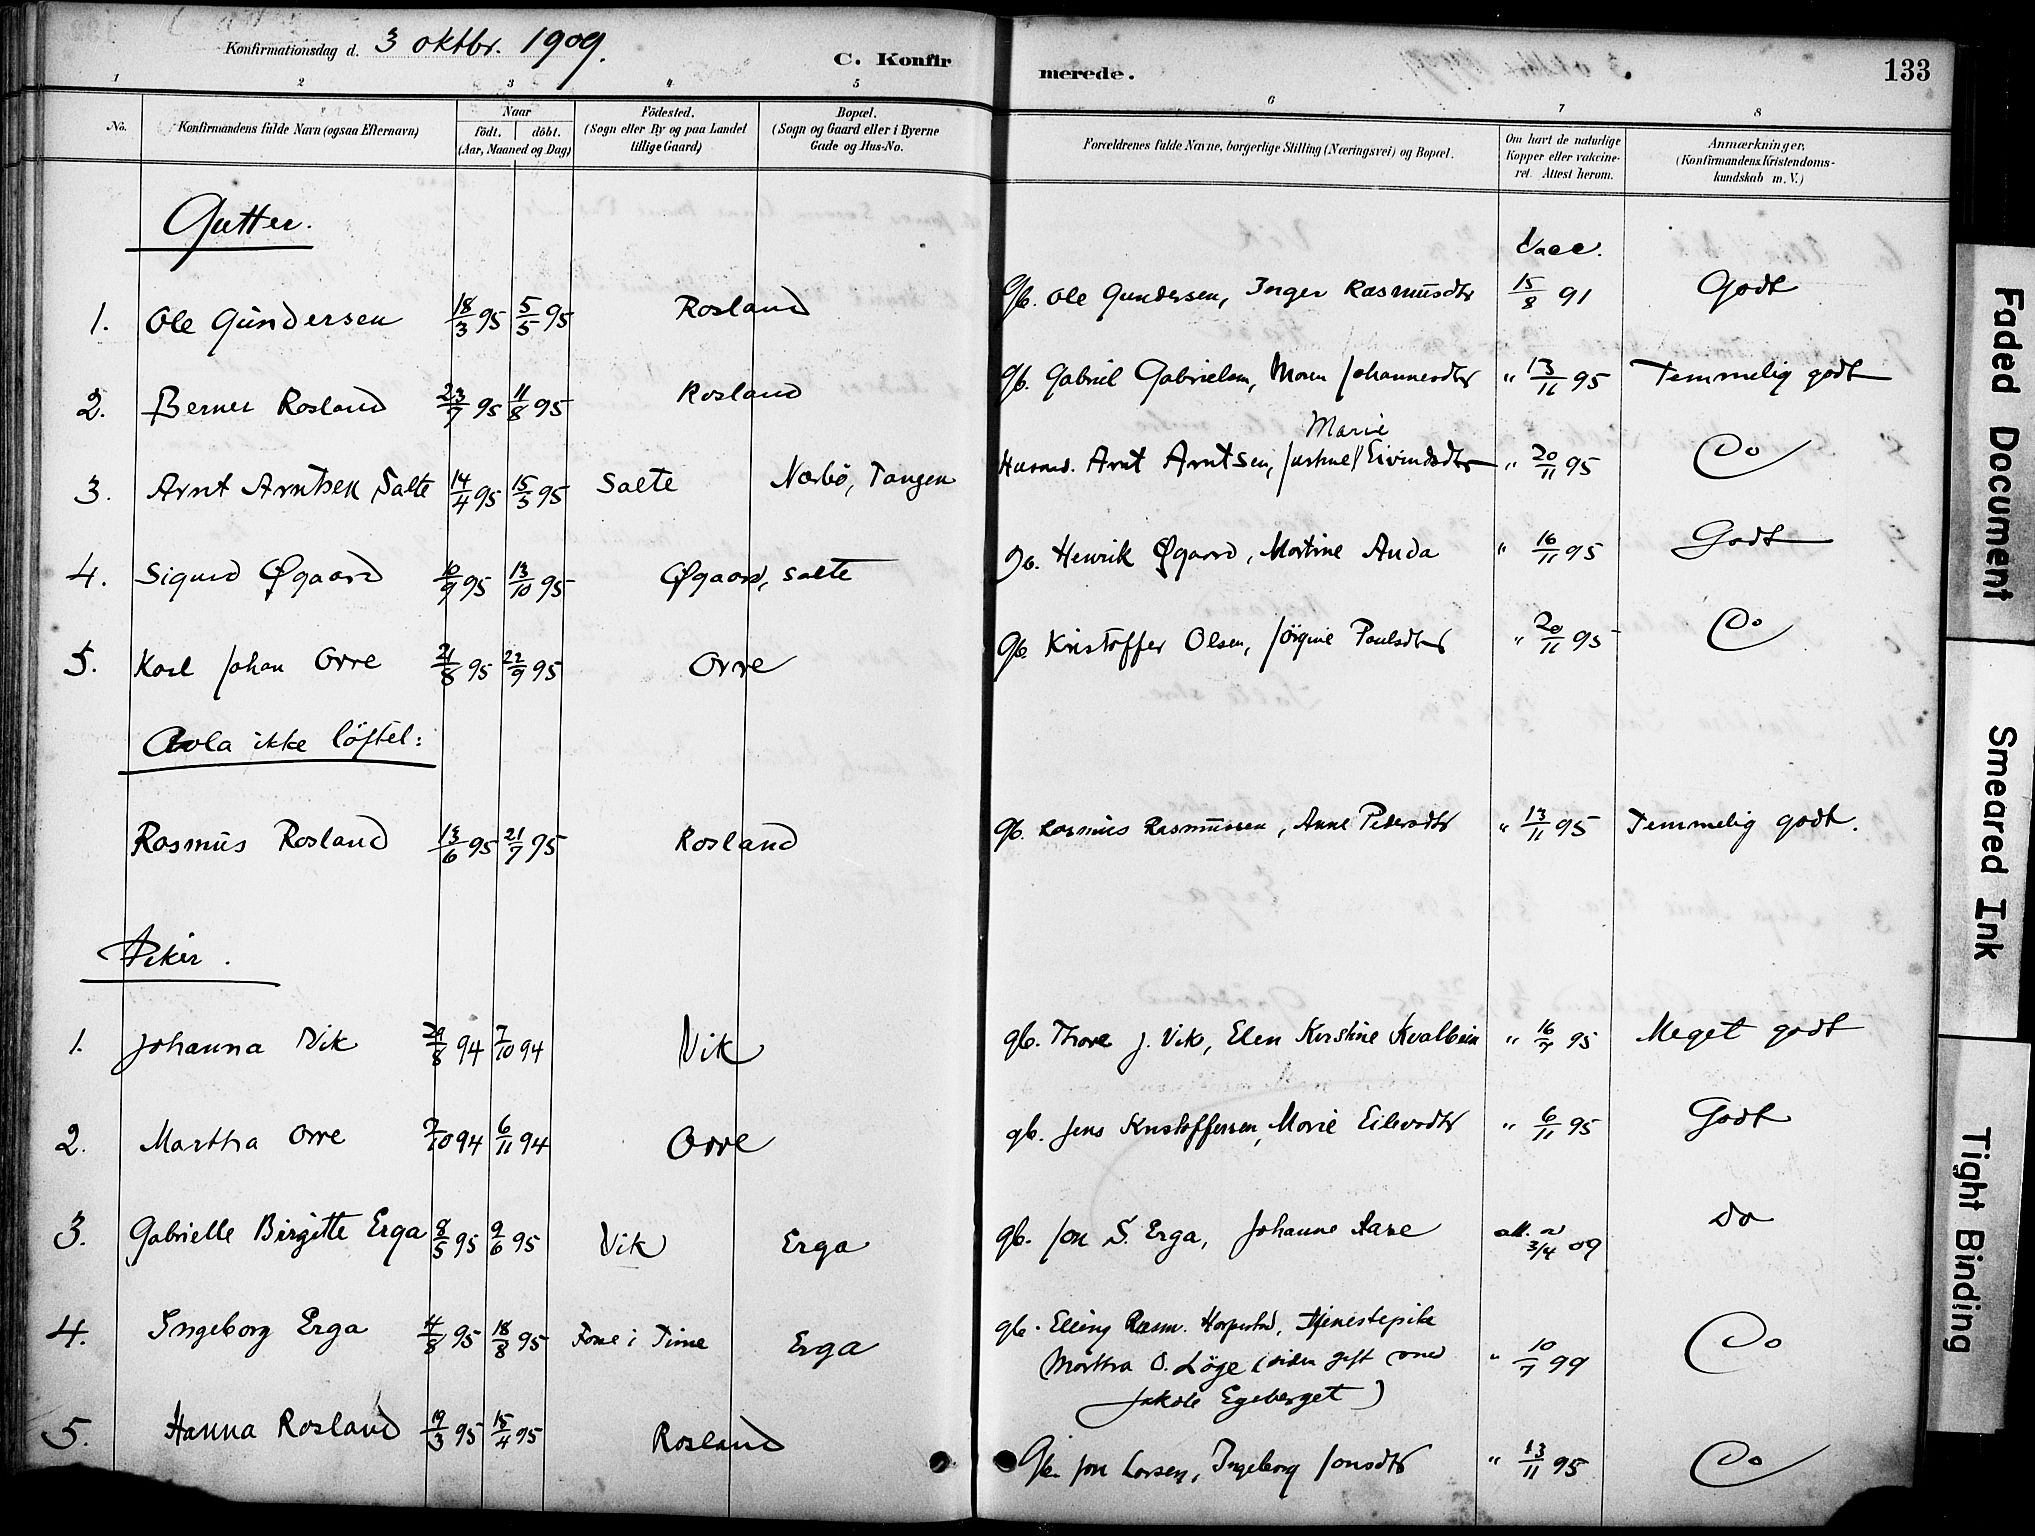 Konfirmationsdag d. 3 oktbr. 1909.
C. Konfirmerede.
133
1 2 3 4 5 6 7 8
No.
Konfirmandens fulde Navn (ogsaa Efternavn)
Naar
födt. döbt.
(Aar, Maaned og Dag)
Födested.
(Sogn eller By og paa Landet
tillige Gaard)
Bopæl.
(Sogn og Gaard eller i Byerne
Gade og Hus-No.
Forældrenes fulde Navne, borgerlige Stilling (Næringsvei) og Bopæl.
Om havt de naturlige
Kopper eller vakcine-
ret. Attest herom.
Anmærkninger.
(Konfirmandens Kristendoms-
kundskab m. V.)
Gutter.
Vacc.
1. Ole Gundersen 18/3 95 5/5 95 Rosland Gb. Ole Gundersen, Inger Rasmusdtr 15/8 91 Godt
2. Berner Rosland 23/7 95 11/8 95 Rosland Gb. Gabriel Gabrielsen, Maren Johannesdtr " 13/11 95 Temmelig godt
3. Arnt Arntsen Salte 14/4 95 15/5 95 Salte Nærbö, Tangen Husmd. Arnt Arntsen, Justine Marie Eivindsdtr " 20/11 95 Do
4. Sigurd Øgaard 10/9 95 13/10 95 Øgaard, Salte Gb. Henrik Øgaard, Martine Auda " 16/11 95 Godt
5. Karl Johan Orre 21/8 95 22/9 95 Orre Gb. Kristoffer Olsen, Jörgine Paulsdtr " 20/11 95 Do
Avla ikke löftet:
Rasmus Rosland 13/6 95 21/7 95 Rosland Gb. Rasmus Rasmussen, Anne Pedersdtr " 13/11 95 Temmelig godt.
Piker.
1. Johanna Vik 29/8 94 7/10 94 Vik gb. Thore J. Vik, Elen Kirstine Kvalbein " 16/7 95 Meget godt
2. Martha Orre 7/10 94 6/11 94 Orre gb. Jens Kristoffersen, Marie Eilevsdtr " 6/11 95 Godt
3. Gabrielle Birgitte Erga 8/5 95 9/6 95 Vik Erga gb. Jon S. Erga, Johanne Aase att. a 3/4 09 Do
4. Ingeborg Erga 4/8 95 18/8 95 Fosse i Time Erga gb. Elling Rasm. Harpestad, Tjenestepike
Martha O. Löge (siden gift med " 10/7 99 Do
Jakob Egeberget)
5. Hanna Rosland 19/3 95 15/4 95 Rosland Gb. Jon Larsen, Ingeborg Jonsdtr " 13/11 95 Do
Faded Document
Smeared Ink
Tight Binding